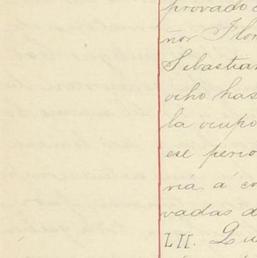 provado
ñor Flor
Sebastian
ocho has
la ocupo
ese perio
ría á co
vadas d
LII. Qu